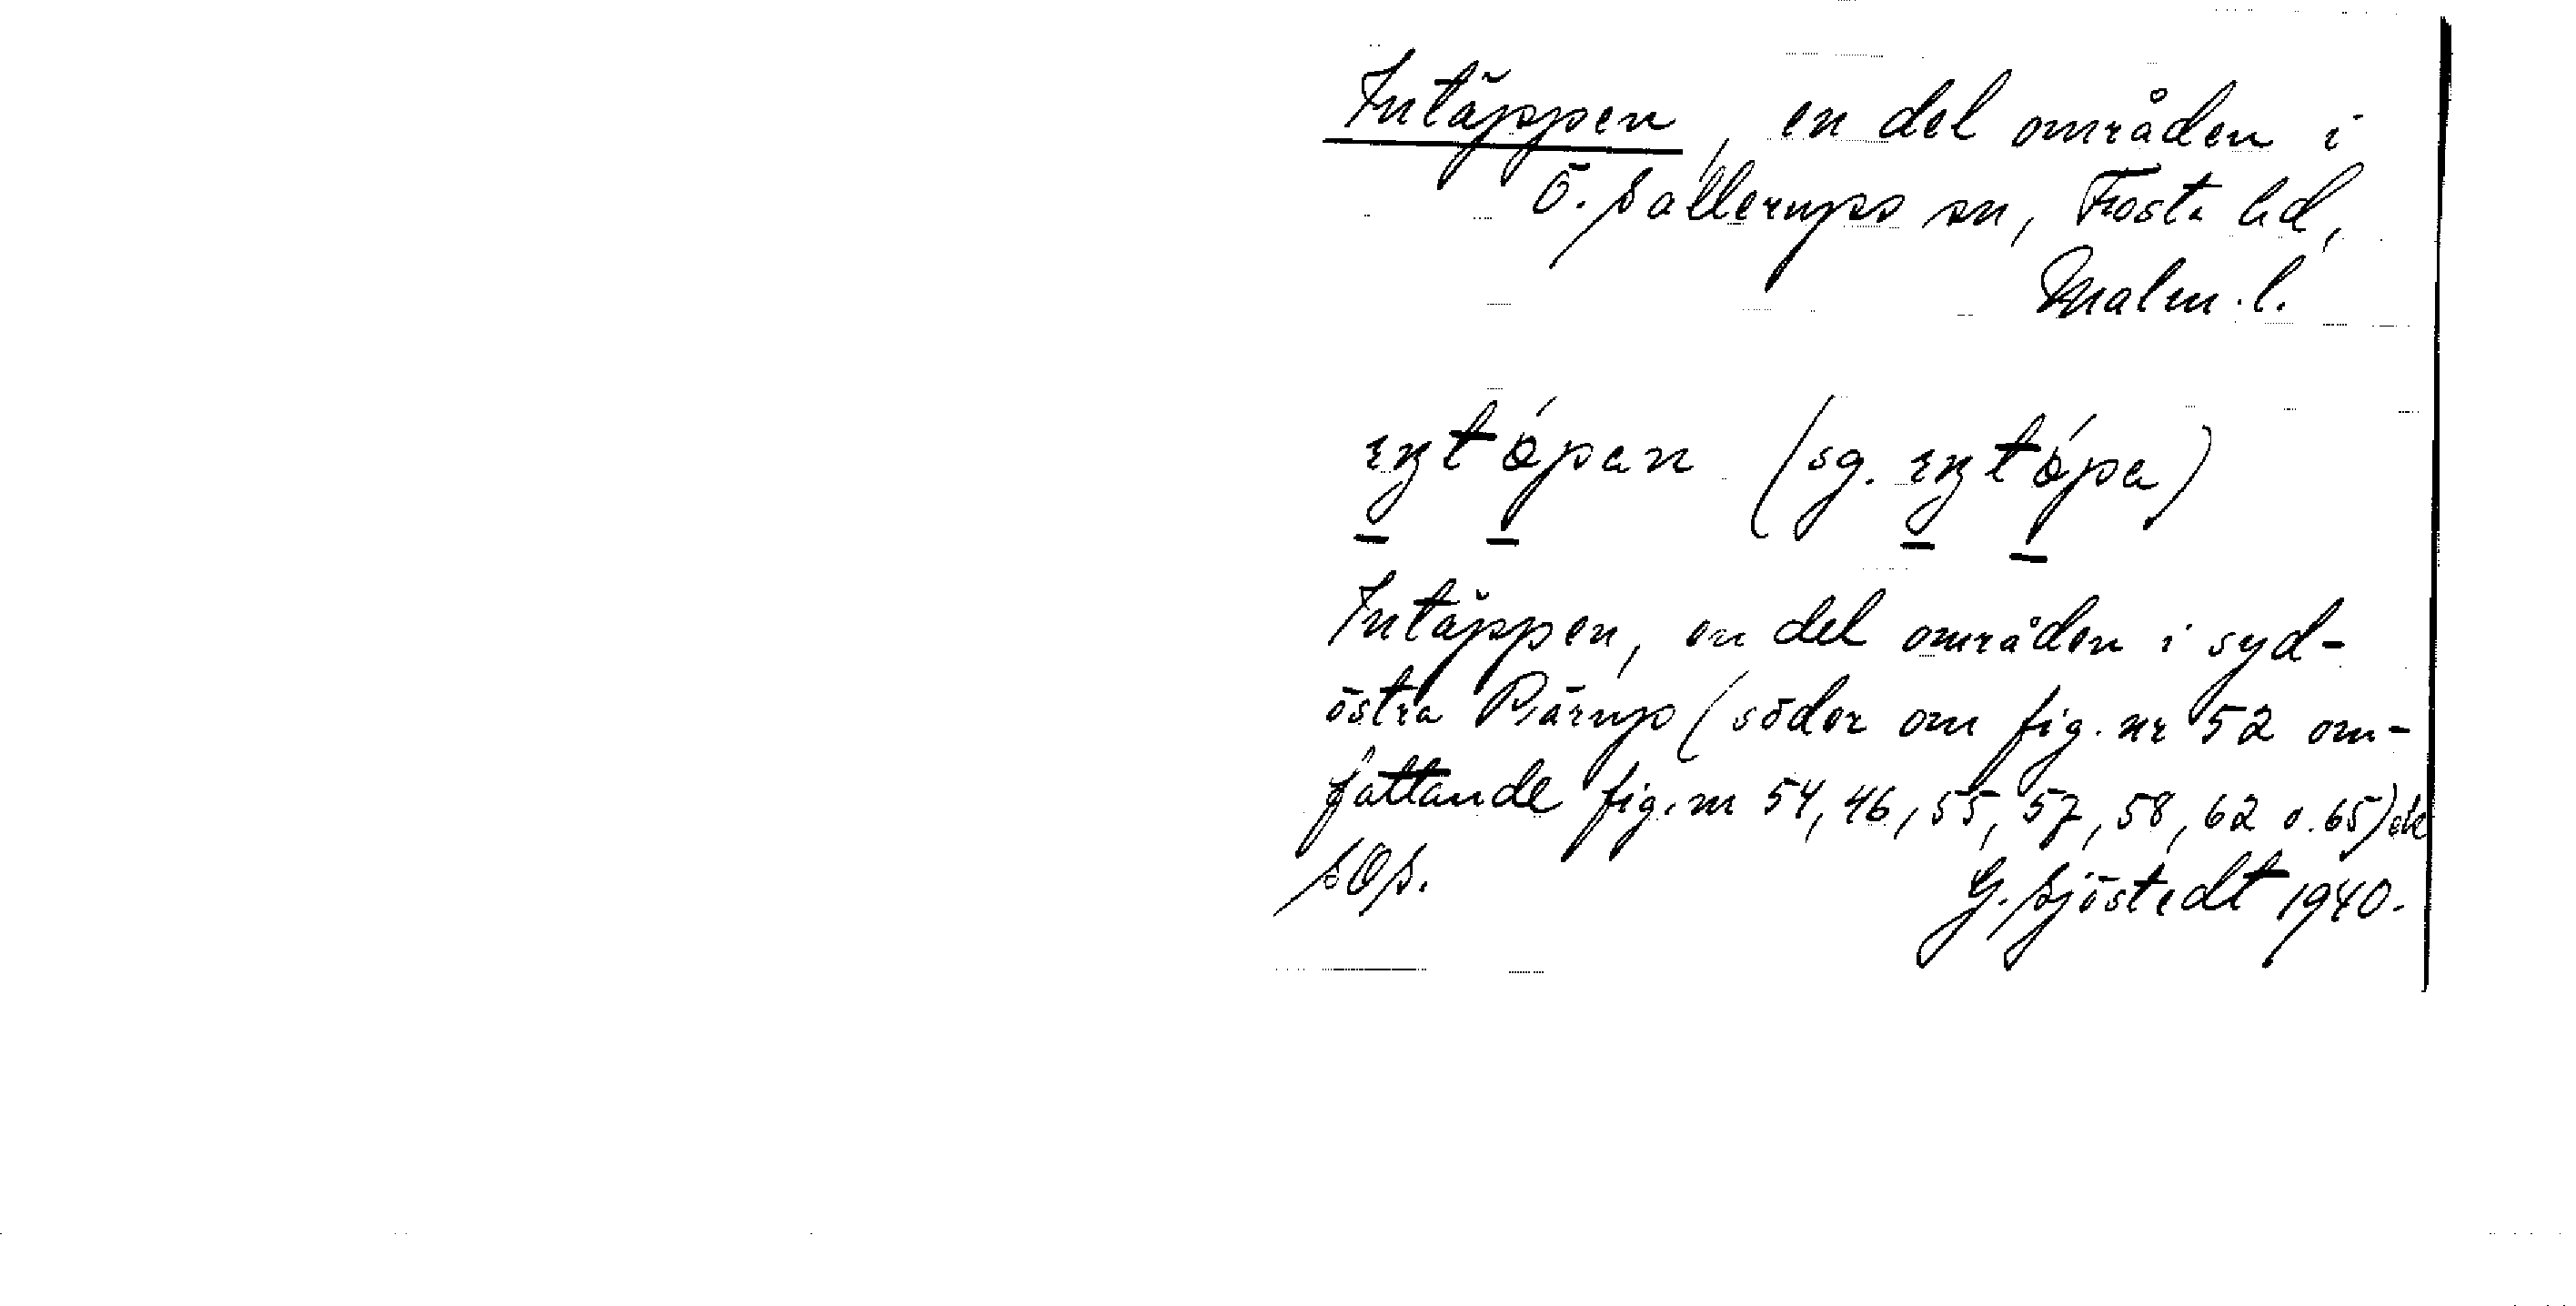 Intäppen, en del områden i
Ö. Sallerups sn, Frosta hd,
Malm. l.
(sg.
Intäppen, en del områden i syd-
östra Pärup (söder om fig. nr 52 om-
fattande fig. nr 54, 46, 55, 57, 58, 62 o. 65)
SOS.
G. Sjöstedt 1940.